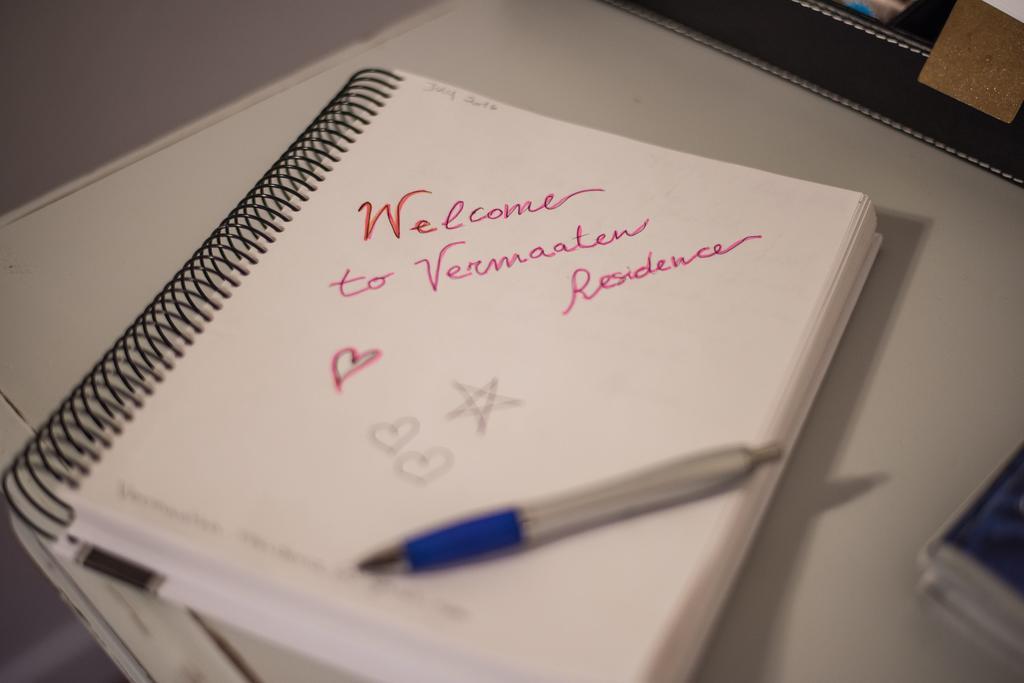 July 2016
Welcome
to Vermaaten
Residence
Vermaaten